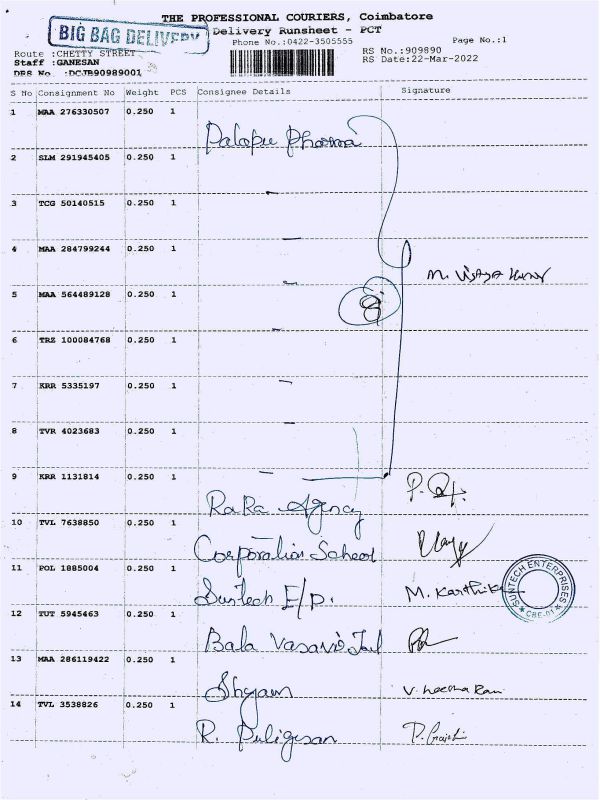 THE PROFESSIONAL COURIERS, Coimbatore
BIG BAG DELIVERY
Delivery Runsheet - PCT
Phone No.:0422-3505555
Page No.:1
Route :CHETTY STREET
RS No.:909890
Staff :GANESAN
RS Date:22-Mar-2022
DRS No. :DCJB90989001
S No Consignment No Weight PCS Consignee Details Signature
1 MAA 276330507 0.250 1
Pharma
2 SLM 291945405 0.250 1
3 TCG 50140515 0.250 1
4 MAA 284799244 0.250 1
M. Vijaya Kumar
5 MAA 564489128 0.250 1
8
6 TRZ 100084768 0.250 1
7 KRR 5335197 0.250 1
8 TVR 4023683 0.250 1
9 KRR 1131814 0.250 1
RaRa Agency
10 TVL 7638850 0.250 1
Corporation School
11 POL 1885004 0.250 1
Suntech E/p. M. Karthik
SUNTECH ENTERPRISES
CBE-01
12 TUT 5945463 0.250 1
Bala
13 MAA 286119422 0.250 1
Shyam
14 TVL 3538826 0.250 1
R. Puligesan